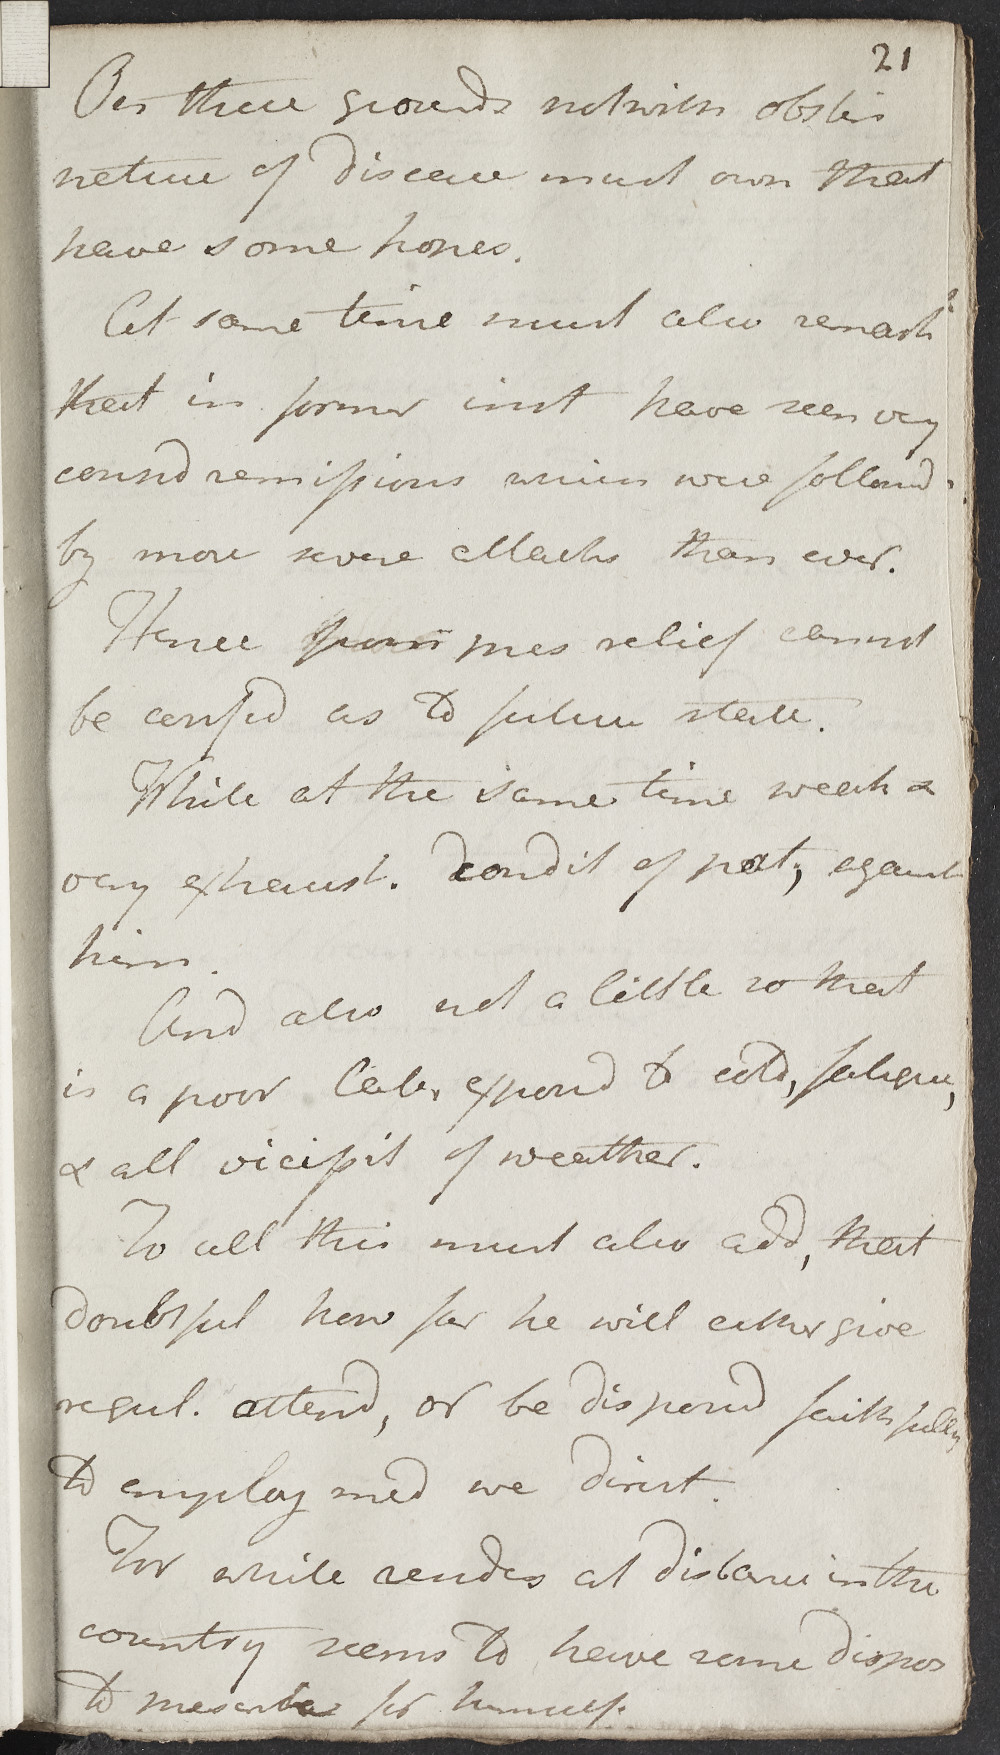 21
On these grounds notwith obstin
nature of disease must own that
have some hopes.
At same time must also remark
that in former inst have seen very
consd remissions which were followd
by more severe attacks than ever.
Hence pres relief cannot
be confid as to future state.
While at the same time weak &
very exhaust. condit of pat, against
him.
And also not a little so that
is a poor Lab. exposed to cold, fatigue,
& all vicissit of weather.
To all this must also add, that
doubtful how far he will either give
regul. attend, or be disposed faithfully
to employ med we direct.
For while resides at distance in the
country seems to have some dispos
to prescribe for himself.